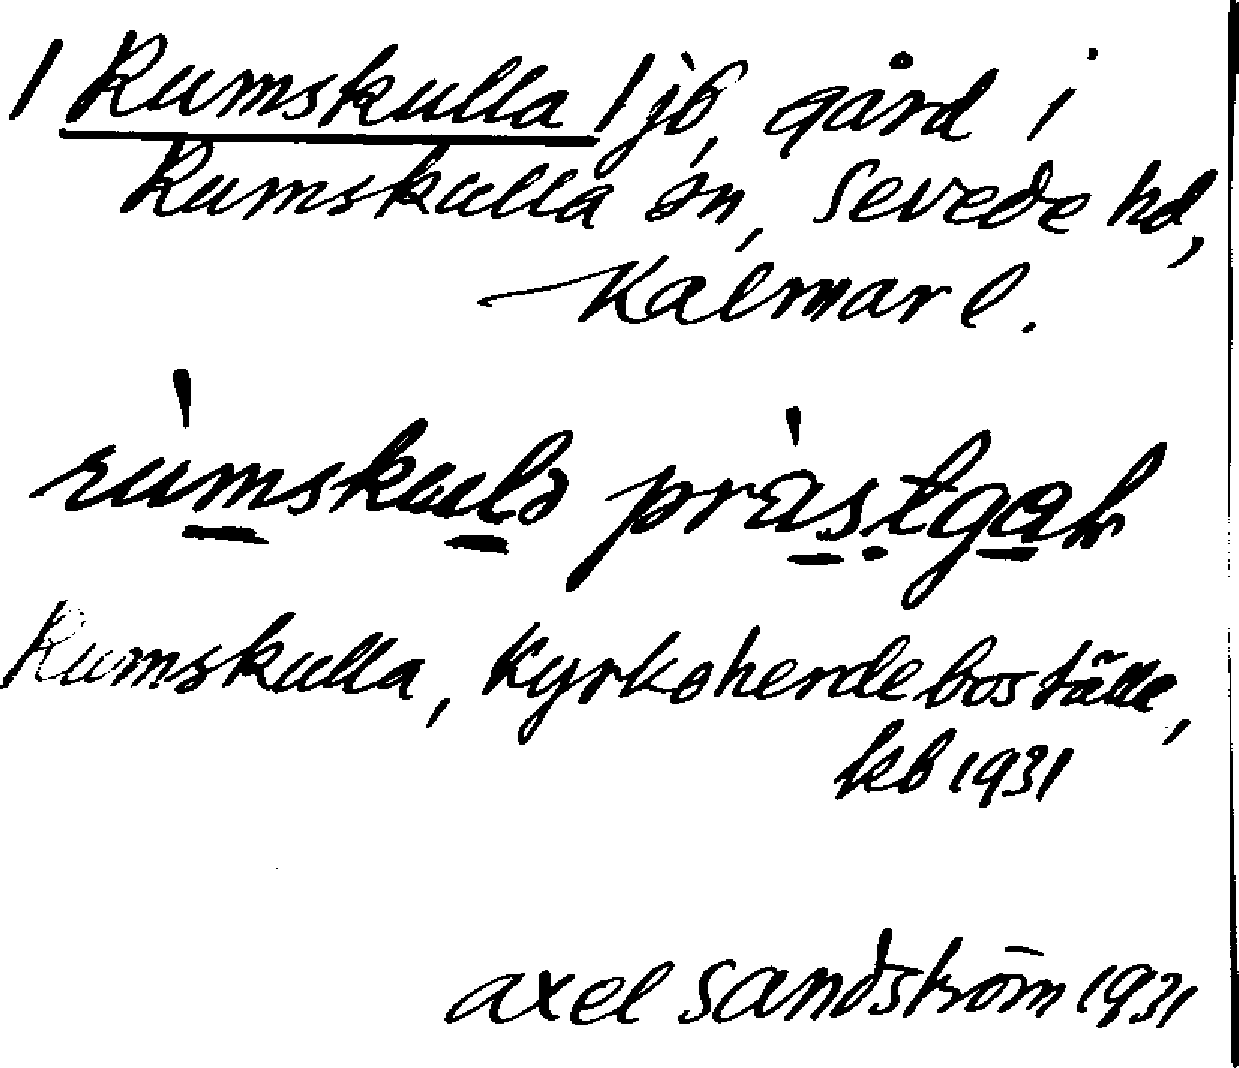 1 Rumskulla 1 jb, gård i
Rumskulla sn, Sevede hd,
Kalmar l.
rùmskulə pràstgaƚ
Rumskulla, Kyrkoherdeboställe,
kb 1931
axel sandström 1931